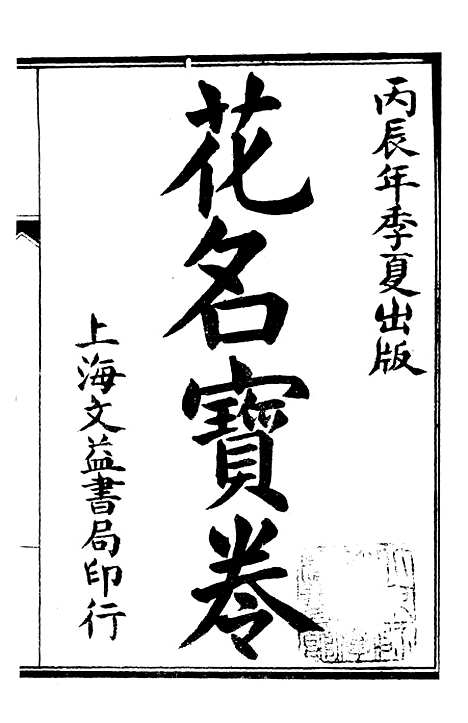 丙辰年季夏出版
花名寶卷
上海文益書局印行